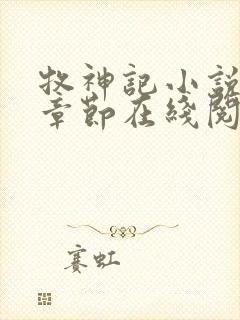 牧神記小説
章節在綫閱
赛虹